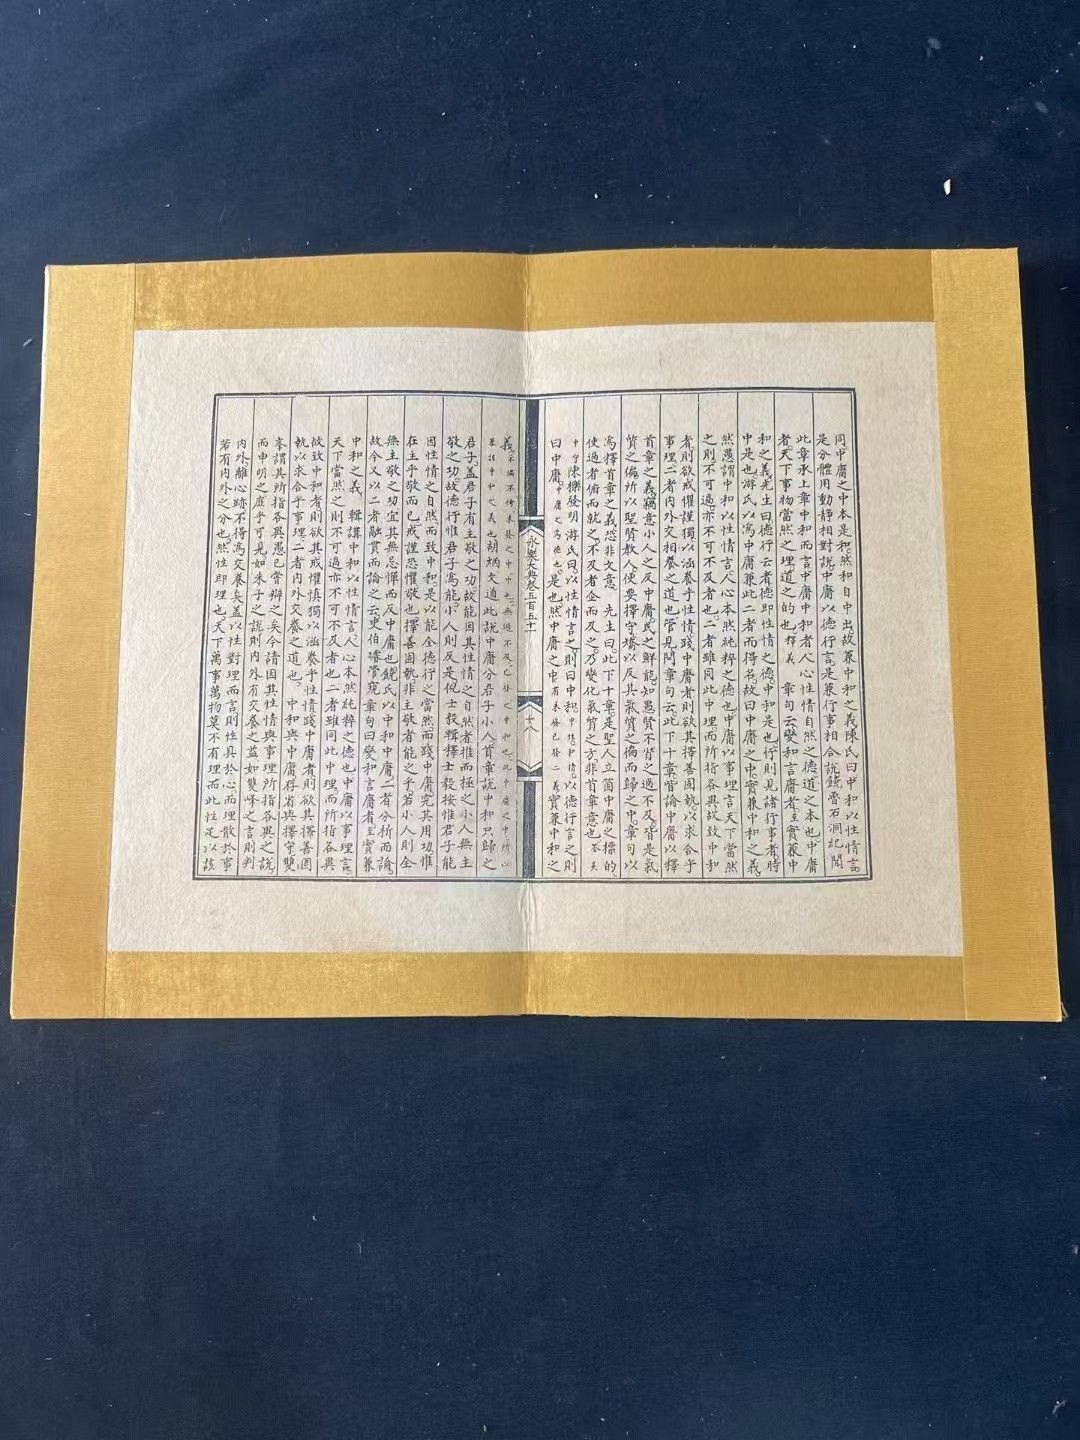 同中庸之中本是和然和自中出故兼中和之義陳氏曰中和以性情言
是分體用動靜相對說中庸以德行言是兼行事相合說饒魯石洞紀聞
此章承上章中和而言中庸中和者人心性情自然之德道之本也中庸
者天下事物當然之理道之的也釋義章句云變和言庸者至實兼中
和之義先生曰德行云者德即性情之德中和是也行則見諸行事者時
中是也游氏以為中庸兼此二者而得名故曰中庸之中實兼中和之義
然愚謂中和以性情言人心本然純粹之德也中庸以事理言天下當然
之則不可過亦不可不及者也二者雖同此中理而所指各異故致中和
者則欲戒懼謹獨以涵養乎性情踐中庸者則欲其擇善固執以求合乎
事理二者內外交相養之道也管見問章句云此下十章皆論中庸以釋
首章之義竊意小人之反中庸民之鮮能如愚賢不肖之過不及皆是氣
質之偏所以聖賢教人使要擇守矯以反其氣質之偏而歸之中章句以
為釋首章之義恐非文意先生曰此下十章是聖人立箇中庸之標的
使過者俯而就之不及者企而及之乃變化氣質之方非首章意也
中字陳櫟發明游氏曰以性情言之則曰中和以德行言之則
曰中庸是也然中庸之中實兼中和之
永樂大典卷五百五十
十八
義不偏不倚未發之中也無過不及已發之中和也此中庸之中所以
兼該中和之義也胡炳文通此說中庸分君子小人首章說中和只歸之
君子蓋君子有主敬之功故能因其性情之自然者推而極之小人無主
敬之功故德行惟君子為能小人則反是倪士毅輯釋士毅按惟君子能
因性情之自然而致中和是以能全德行之當然而踐中庸究其用功惟
在主乎敬而已戒謹恐懼敬也擇善固執非主敬者能之乎若小人則全
無主敬之功宜其無忌憚而反中庸也饒氏以中和中庸二者分析而論
故今又以二者融貫而論之云史伯璿管窺章句曰變和言庸者至實兼
中和之義輯講中和以性情言人心本然純粹之德也中庸以事理言
天下當然之則不可過亦不可不及者也二者雖同此中理而所指各異
故致中和者則欲其戒懼慎獨以涵養乎性情踐中庸者則欲其擇善固
執以求合乎事理二者內外交養之道也中和與中庸存省與擇守雙
峯謂其所指各異愚已嘗辯之矣今請因其性情與事理所指各異之說
而申明之庶乎可見如朱子之說則內外有交養之益如雙峰之言則判
內外離心跡不得為交養矣蓋以性對理而言則性具於心而理散於事
若有內外之分也然性即理也天下萬事萬物莫不有理而此性足以該